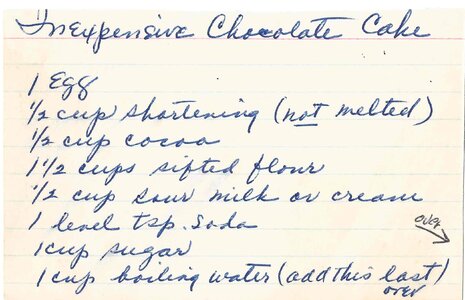 Inexpensive Chocolate Cake
1 Egg
1/2 cup shortening (not melted)
1/2 cup cocoa
1 1/2 cups sifted flour
1/2 cup sour milk or cream
1 level tsp. Soda
over
1 cup sugar
1 cup boiling water (add this last)
over